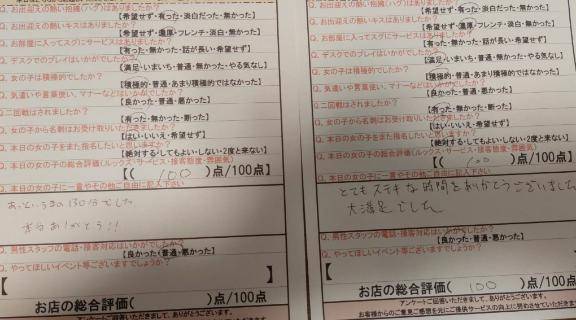 Q. お出迎えの熱い抱擁(ハグ)はありましたか?
【希望せず・有った・淡白だった・無かった】
Q. お出迎えの熱いキスはありましたか?
【希望せず・濃厚・フレンチ・淡白・無かった】
Q. お部屋に入ってスグにサービスはありましたか?
【有った・無かった・話が長い・希望せず】
Q. デスクでのプレイはいかがでしたか?
【満足・いまいち・普通・無かった・やる気なし】
Q. 女の子は積極的でしたか?
【積極的・普通・あまり積極的ではなかった】
Q. 気遣いや言葉使い、マナーなどはいかがでしたか?
【良かった・普通・悪かった】
Q. 二回戦はされましたか?
【有った・無かった・断った】
Q. 女の子から名刺はお受け取りいただきましたか?
【はい・いいえ・希望せず】
Q. 本日の女の子をまた指名したいと思いますか?
【絶対する・してもよい・しない・2度と来ない】
Q. 本日の女の子の総合評価(ルックス・サービス・接客態度・雰囲気)
【( 100 )点/100点】
本日の女の子に一言やその他ご自由に記入下さい
あっというまの130分でした
本当ありがとう!!
Q. 男性スタッフの電話・接客対応はいかがでしたか?
【良かった・普通・悪かった】
Q. やってほしいイベント等ございますでしょうか?
【
お店の総合評価( )点/100点
アンケートご回答いただきまして、ありがとうございます。
Q. お出迎えの熱い抱擁(ハグ)はありましたか?
【希望せず・有った・淡白だった・無かった】
Q. お出迎えの熱いキスはありましたか?
【希望せず・濃厚・フレンチ・淡白・無かった】
Q. お部屋に入ってスグにサービスはありましたか?
【有った・無かった・話が長い・希望せず】
Q. デスクでのプレイはいかがでしたか?
【満足・いまいち・普通・無かった・やる気なし】
Q. 女の子は積極的でしたか?
【積極的・普通・あまり積極的ではなかった】
Q. 気遣いや言葉使い、マナーなどはいかがでしたか?
【良かった・普通・悪かった】
Q. 二回戦はされましたか?
【有った・無かった・断った】
Q. 女の子から名刺はお受け取りいただきましたか?
【はい・いいえ・希望せず】
Q. 本日の女の子をまた指名したいと思いますか?
【絶対する・してもよい・しない・2度と来ない】
Q. 本日の女の子の総合評価(ルックス・サービス・接客態度・雰囲気)
【( 100 )点/100点】
本日の女の子に一言やその他ご自由に記入下さい
とてもステキな時間をありがとうございました
大満足でした
Q. 男性スタッフの電話・接客対応はいかがでしたか?
【良かった・普通・悪かった】
Q. やってほしいイベント等ございますでしょうか?
【
お店の総合評価( 100 )点/100点
アンケートご回答いただきまして、ありがとうございます。
お客様からのご意見ご感想を元にご提供サービスの向上に努めさせていただき